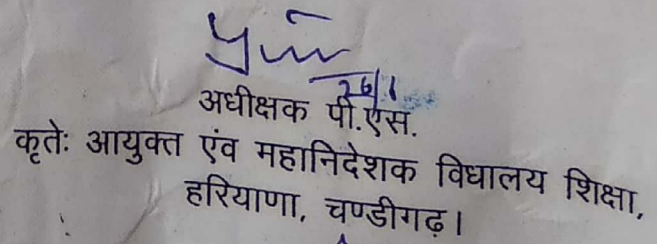 26/1
अधीक्षक पी.एस.
कृतेः आयुक्त एंव महानिदेशक विधालय शिक्षा,
हरियाणा, चण्डीगढ़।